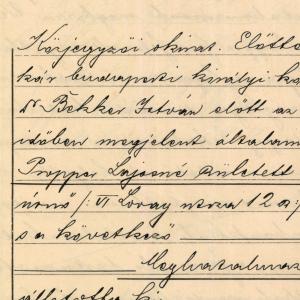 Közjegyzői okirat. Előtte
kár budapesti királyi kö
Dr Bekker István előtt az
időben megjelent általam
Propper Lajosné született
úrnő /: VI Lovag utca 12 a:/
s a következő
Meghatalmaz
állította ki